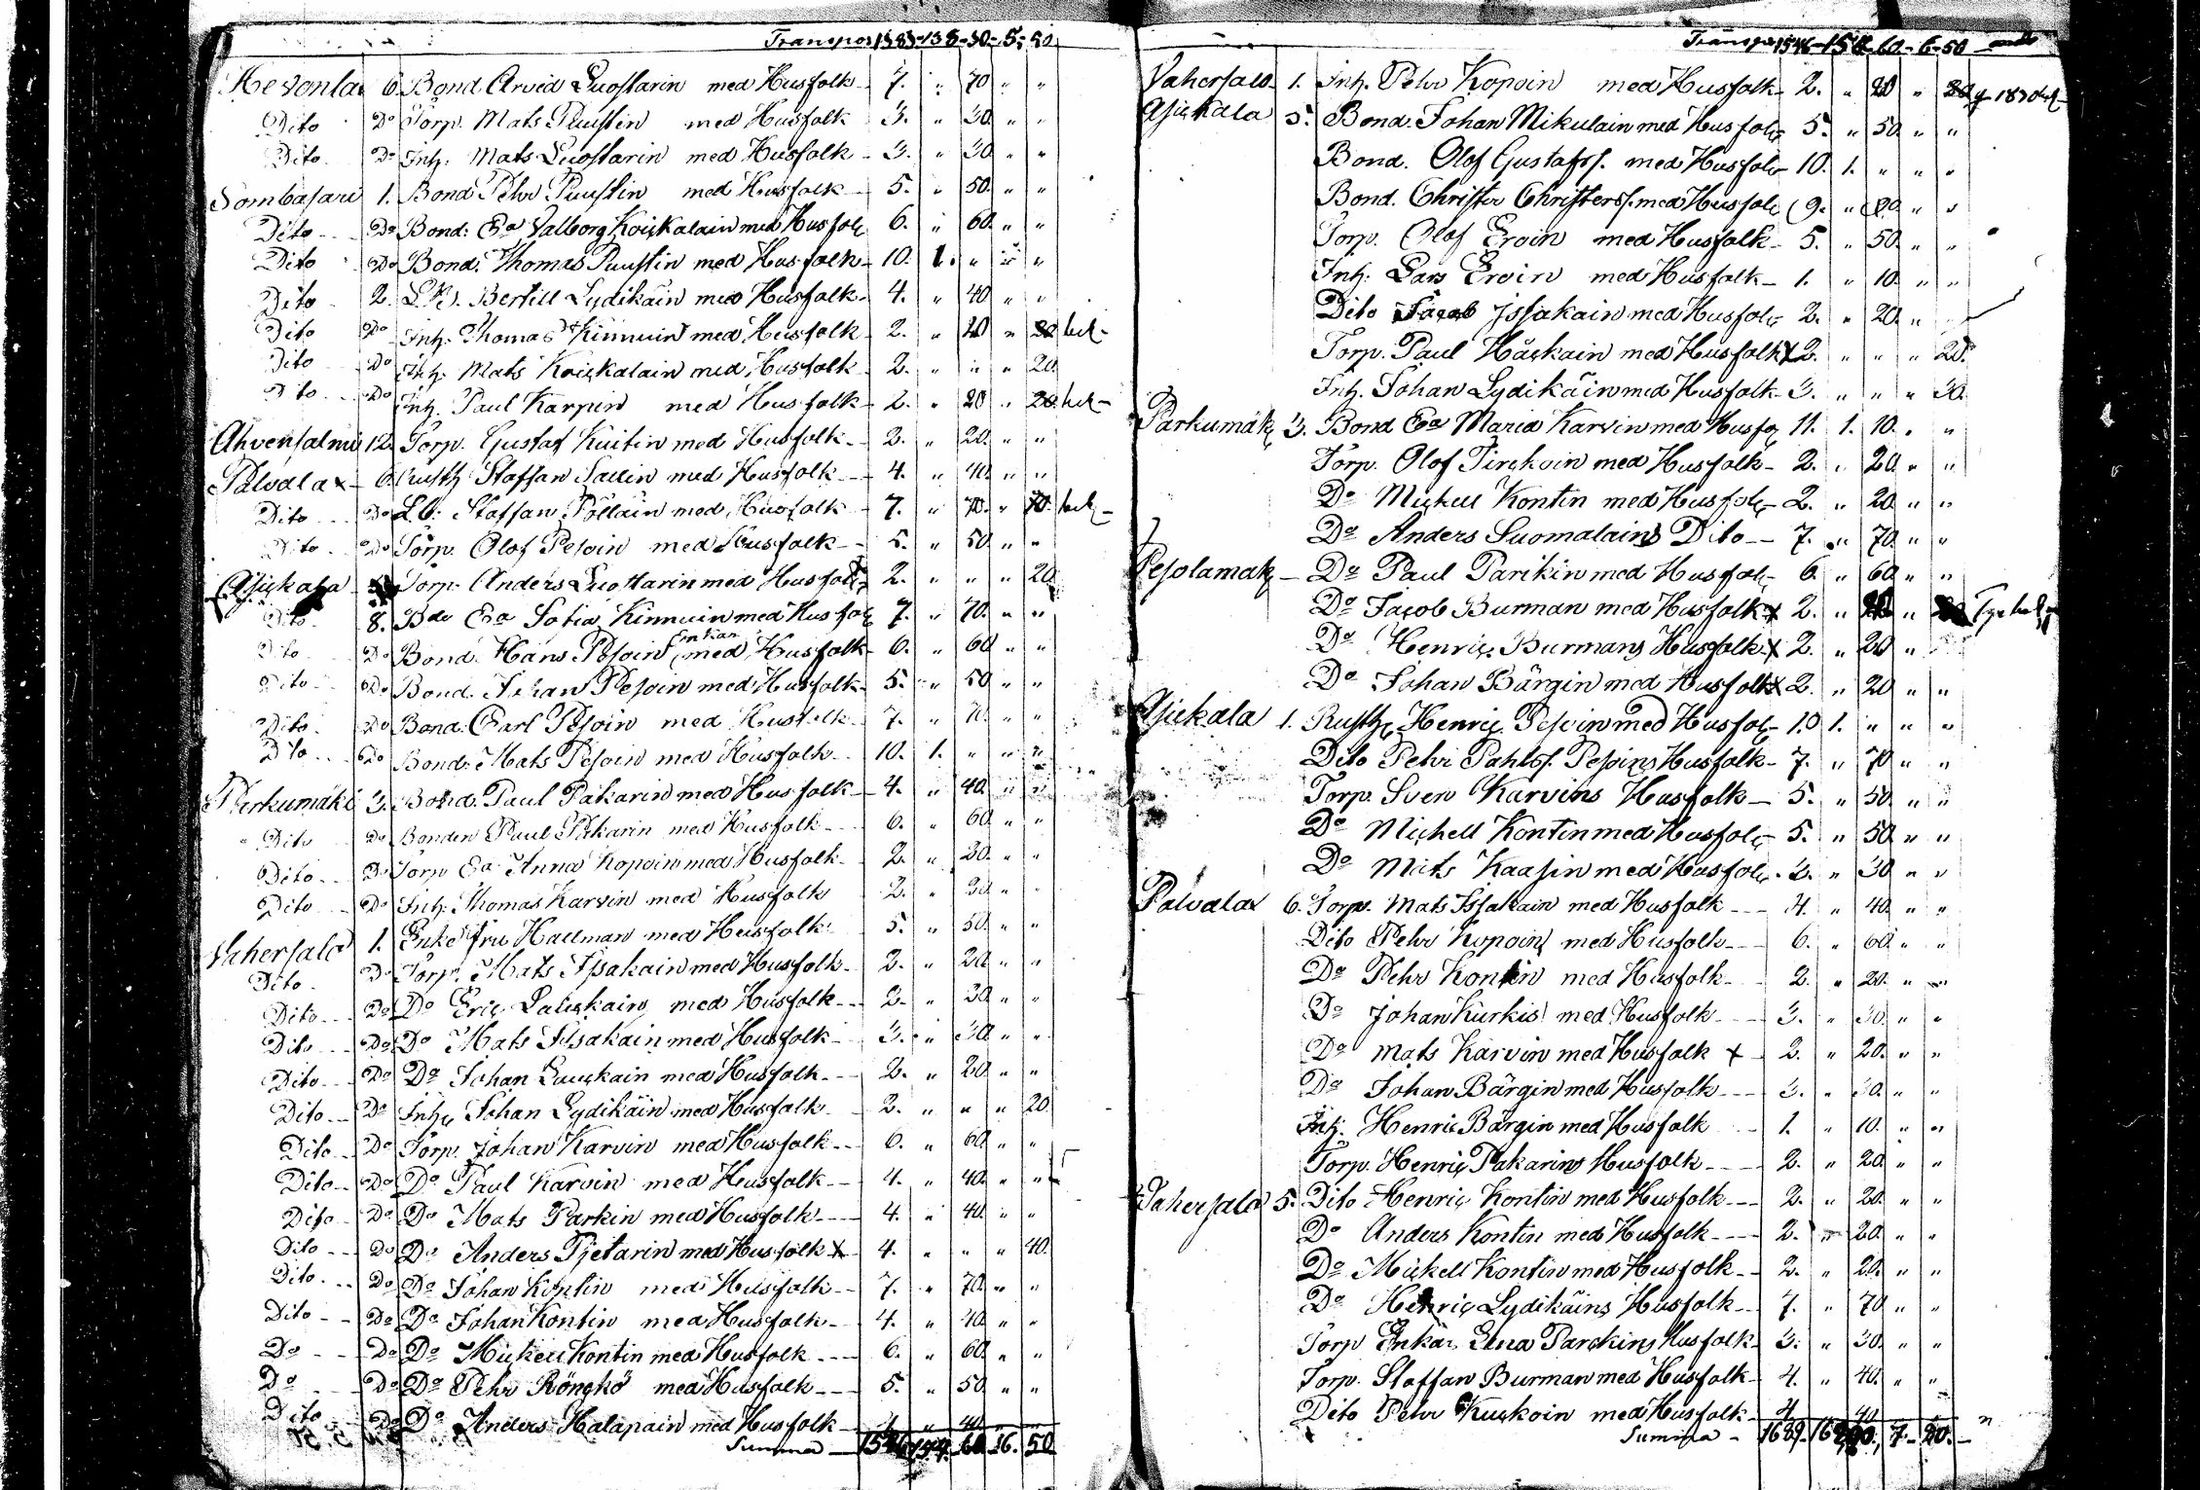 Transpor 1383-138-30-5-50
Hevonla 6. Bond. Arved Luostarin med Husfolk 7. " 70 " "
Dito Do Torp. Mats Puustin med Husfolk 3. " 30 " "
Dito Do Inh. Mats Luostarin med Husfolk 3. " 30 " "
Sombasari 1. Bond Pehr Puustin med Husfolk 5. " 50. " "
Dito Do Bond: Ea Valborg Koickalain med Husfolk 6. " 60. " "
Dito Do Bond. Thomas Puustin med Husfolk 10. 1. " " "
Dito 2. L.B. Bertill Lydikäin med Husfolk 4. " 40 " "
Dito Do Inh. Thomas Kinnuin med Husfolk 2. " 20 " 20 bet
Dito Do Inh. Mats Koickalain med Husfolk 2. " " " 20
Dito Do Inh. Paul Karpin med Husfolk 2. " 20 " 20 bet
Ahvensalmi 12. Torp. Gustaf Kuitin med Husfolk 2. " 20. " "
Palvala x 6. Rusth Staffan Sallin med Husfolk 4. " 40. " "
Dito Do L.B. Staffan Pöllain med Husfolk 7. " 70. " 70. bet
Dito Do Torp. Olof Pesoin med Husfolk 5. " 50 " "
Asickala Torp. Anders Luostarin med Husfolk 2. " " " 20
Dito. 8. Bde Ea Sofia Kinnuin med Husfolk 7. " 70. " "
Dito Do Bond. Hans Pesoin Enkan med Husfolk 6. " 60 " "
Dito Do Bond. Johan Pesoin med Husfolk 5. " 50 " "
Dito Do Bond. Carl Pesoin med Husfolk 7. " 70. " "
Dito Do Bond. Mats Pesoin med Husfolk 10. 1. " " "
Parkumäki 3. Bond. Paul Pakarin med Husfolk 4. " 40. " "
Dito Do Bonden Paul Pakarin med Husfolk 6. " 60 " "
Dito Do Torp Ea Anna Kopoin med Husfolk 2. " 20. " "
Dito Do Inh. Thomas Karvin med Husfolk 2. " 20. " "
Vahersalo 1. Enkefru Hallman med Husfolk 5. " 50. " "
Dito Do Torp. Mats Issakain med Husfolk 2. " 20 " "
Dito Do Do Eric Laickain med Husfolk 2. " 20 " "
Dito Do Do Mats Issakain med Husfolk 3. " 30 " "
Dito Do Do Johan Lauckain med Husfolk 2. " 20 " "
Dito Do Inh. Johan Lydikäin med Husfolk 2. " " " 20.
Dito Do Torp. Johan Karvin med Husfolk 6. " 60 " "
Dito Do Do Paul Karvin med Husfolk 4. " 40. " "
Dito Do Do Mats Parkin med Husfolk 4. " 40. " "
Dito Do Do Anders Pjetarin med Husfolk x 4. " " " 40.
Dito Do Do Johan Kontin med Husfolk 7. " 70. " "
Dito Do Do Johan Kontin med Husfolk 4. " 40 " "
Do Do Do Mickell Kontin med Husfolk 6. " 60. " "
Do Do Do Pehr Röngkö med Husfolk 5. " 50 " "
Dito Do Do Anders Halapain med Husfolk 4 " 40.
Summa 1546 154. 60 6. 50
Transpor 1546-154-60-6-50
Vahersalo 1. Inh. Pehr Kopoin med Husfolk 2. " 20 " 20
Asickala 5. Bond. Johan Mikulain med Husfolk 5. " 50. " "
Bond. Olof Gustafss. med Husfolk 10. 1. " " "
Bond. Christer Christerss. med Husfolk 9. " 90 " "
Torp. Olof Eroin med Husfolk 5. " 50. " "
Inh. Lars Eroin med Husfolk 1. " 10. " "
Dito Jacob Issakain med Husfolk 2. " 20. "
Torp. Paul Häckain med Husfolk x 2. " " " 20.
Inh. Johan Lydikäin med Husfolk 3. " " " 30.
Parkumäki 3. Bond Ea Maria Karvin med Husfolk 11. 1. 10. " "
Torp. Olof Tirckoin med Husfolk 2. " 20. " "
Do Mickell Kontin med Husfolk 2. " 20 " "
Do Anders Suomalains Dito 7. " 70. " "
Pesolamäki Do Paul Parikin med Husfolk 6 " 60 " "
Do Jacob Burman med Husfolk x 2. " 20 "
Do Henric Burmans Husfolk x 2. " 20 "
Do Johan Bärgin med Husfolk x 2. " 20 " "
Asickala 1. Rusth Henric Pesoin med Husfolk 10 1. " " "
Dito Pehr Pahlss. Pesoins Husfolk 7. " 70 " "
Torp. Sven Karvins Husfolk 5. " 50. " "
Do Michell Kontin med Husfolk 5. " 50 " "
Do Mats Kaasin med Husfolk 3. " 30 " "
Palvala 6. Torp. Mats Issakain med Husfolk 4. " 40. " "
Dito Pehr Kopoin med Husfolk 6. " 60 " "
Do Pehr Kontin med Husfolk 2. " 20. " "
Do Johan Kurkis med Husfolk 3. " 30. " "
Do Mats Karvin med Husfolk x 2. " 20. " "
Do Johan Bärgin med Husfolk 3. " 30. " "
Inh. Henric Bärgin med Husfolk 1. " 10. " "
Torp. Henric Pakarins Husfolk 2. " 20 " "
Vahersalo 5. Dito Henric Kontin med Husfolk 2. " 20. " "
Do Anders Kontin med Husfolk 2. " 20 " "
Do Mickell Kontin med Husfolk 2. " 20. " "
Do Henric Lydikäins Husfolk 7. " 70 " "
Torp Enkan Elna Parckins Husfolk 3. " 30. " "
Torp. Staffan Burman med Husfolk 4. " 40. " "
Dito Pehr Kuckoin med Husfolk 4 40
Summa 1689. 7. 20.